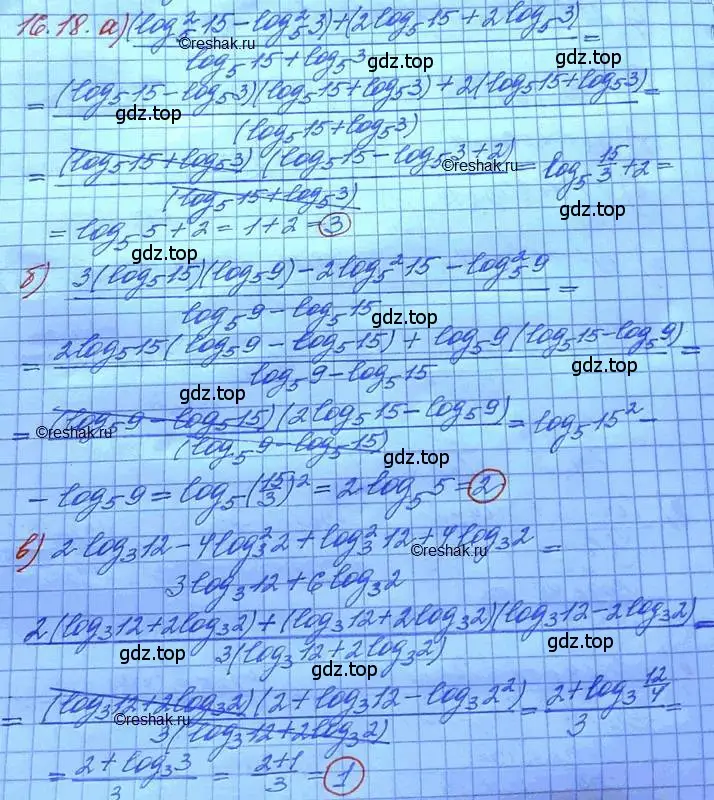 16.18. а) (log₅²15 - log₅²3)+(2log₅15 + 2log₅3) / log₅15 + log₅3 =
= (log₅15 - log₅3)(log₅15 + log₅3) + 2(log₅15 + log₅3) / (log₅15 + log₅3) =
= (log₅15 + log₅3)(log₅15 - log₅3 + 2) / (log₅15 + log₅3) = log₅ 15/3 + 2 =
= log₅5 + 2 = 1 + 2 = 3
б) 3(log₅15)(log₅9) - 2log₅²15 - log₅²9 / log₅9 - log₅15 =
= 2log₅15(log₅9 - log₅15) + log₅9(log₅15 - log₅9) / log₅9 - log₅15 =
= (log₅9 - log₅15)(2log₅15 - log₅9) / (log₅9 - log₅15) = log₅15² -
- log₅9 = log₅(15/3)² = 2log₅5 = 2
в) 2log₃12 - 4log₃²2 + log₃²12 + 4log₃2 / 3log₃12 + 6log₃2 =
2(log₃12 + 2log₃2) + (log₃12 + 2log₃2)(log₃12 - 2log₃2) / 3(log₃12 + 2log₃2) =
= (log₃12 + 2log₃2)(2 + log₃12 - log₃2²) / 3(log₃12 + 2log₃2) = 2 + log₃ 12/4 / 3 =
= 2 + log₃3 / 3 = 2+1 / 3 = 1
©reshak.ru
gdz.top
gdz.top
gdz.top
©reshak.ru
gdz.top
gdz.top
gdz.top
gdz.top
gdz.top
gdz.top
©reshak.ru
gdz.top
©reshak.ru
gdz.top
gdz.top
gdz.top
©reshak.ru